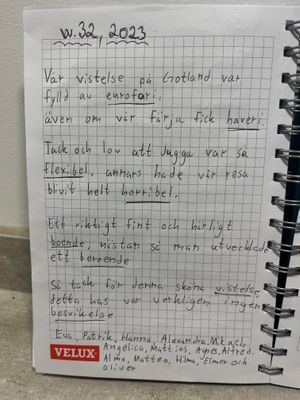 w.32, 2023
Vår vistelse på Gotland var
fylld av eurofori.
även om vår färja fick haveri.
Tack och lov att Jagga var så
flexibel, annars hade vår resa
blivit helt horribel.
Ett riktigt fint och härligt
boende, nästan så man utvecklade
ett beroende
Så tack för denna sköna vistelse,
detta hus var verkligen ingen
besvikelse
Eva, Patrik, Hanna, Alexandra, Mikael,
Angelica, Mattias, Agnes, Alfred,
Alma, Matteo, Hilma, Elmer och
oliver
VELUX